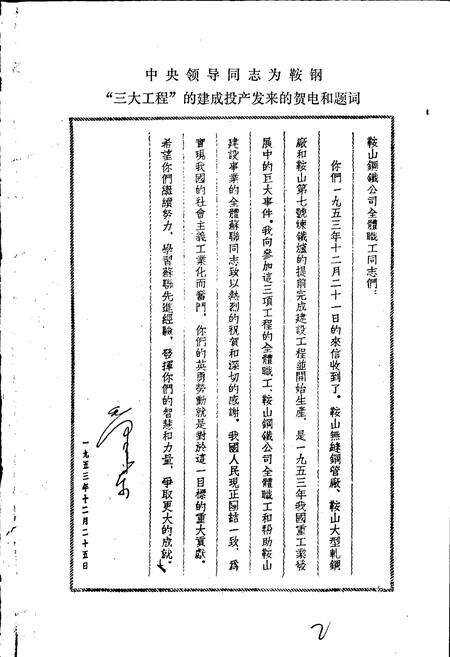 中央领导同志为鞍钢
“三大工程”的建成投产发来的贺电和题词
鞍山鋼鐵公司全體職工同志們：
你們一九五三年十二月二十一日的來信收到了。鞍山無縫鋼管廠、鞍山大型軋鋼
廠和鞍山第七號煉鐵爐的提前完成建設工程並開始生產，是一九五三年我國重工業發
展中的巨大事件。我向參加這三項工程的全體職工、鞍山鋼鐵公司全體職工和幫助鞍山
建設事業的全體蘇聯同志致以熱烈的祝賀和深切的感謝。我國人民現正團結一致，爲
實現我國的社會主義工業化而奮鬥，你們的英勇勞動就是對於這一目標的重大貢獻。
希望你們繼續努力，學習蘇聯先進經驗，發揮你們的智慧和力量，爭取更大的成就。
毛澤東
一九五三年十二月二十五日
2